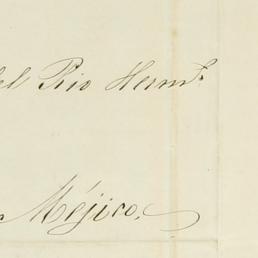 del Rio Herms.
Méjico.